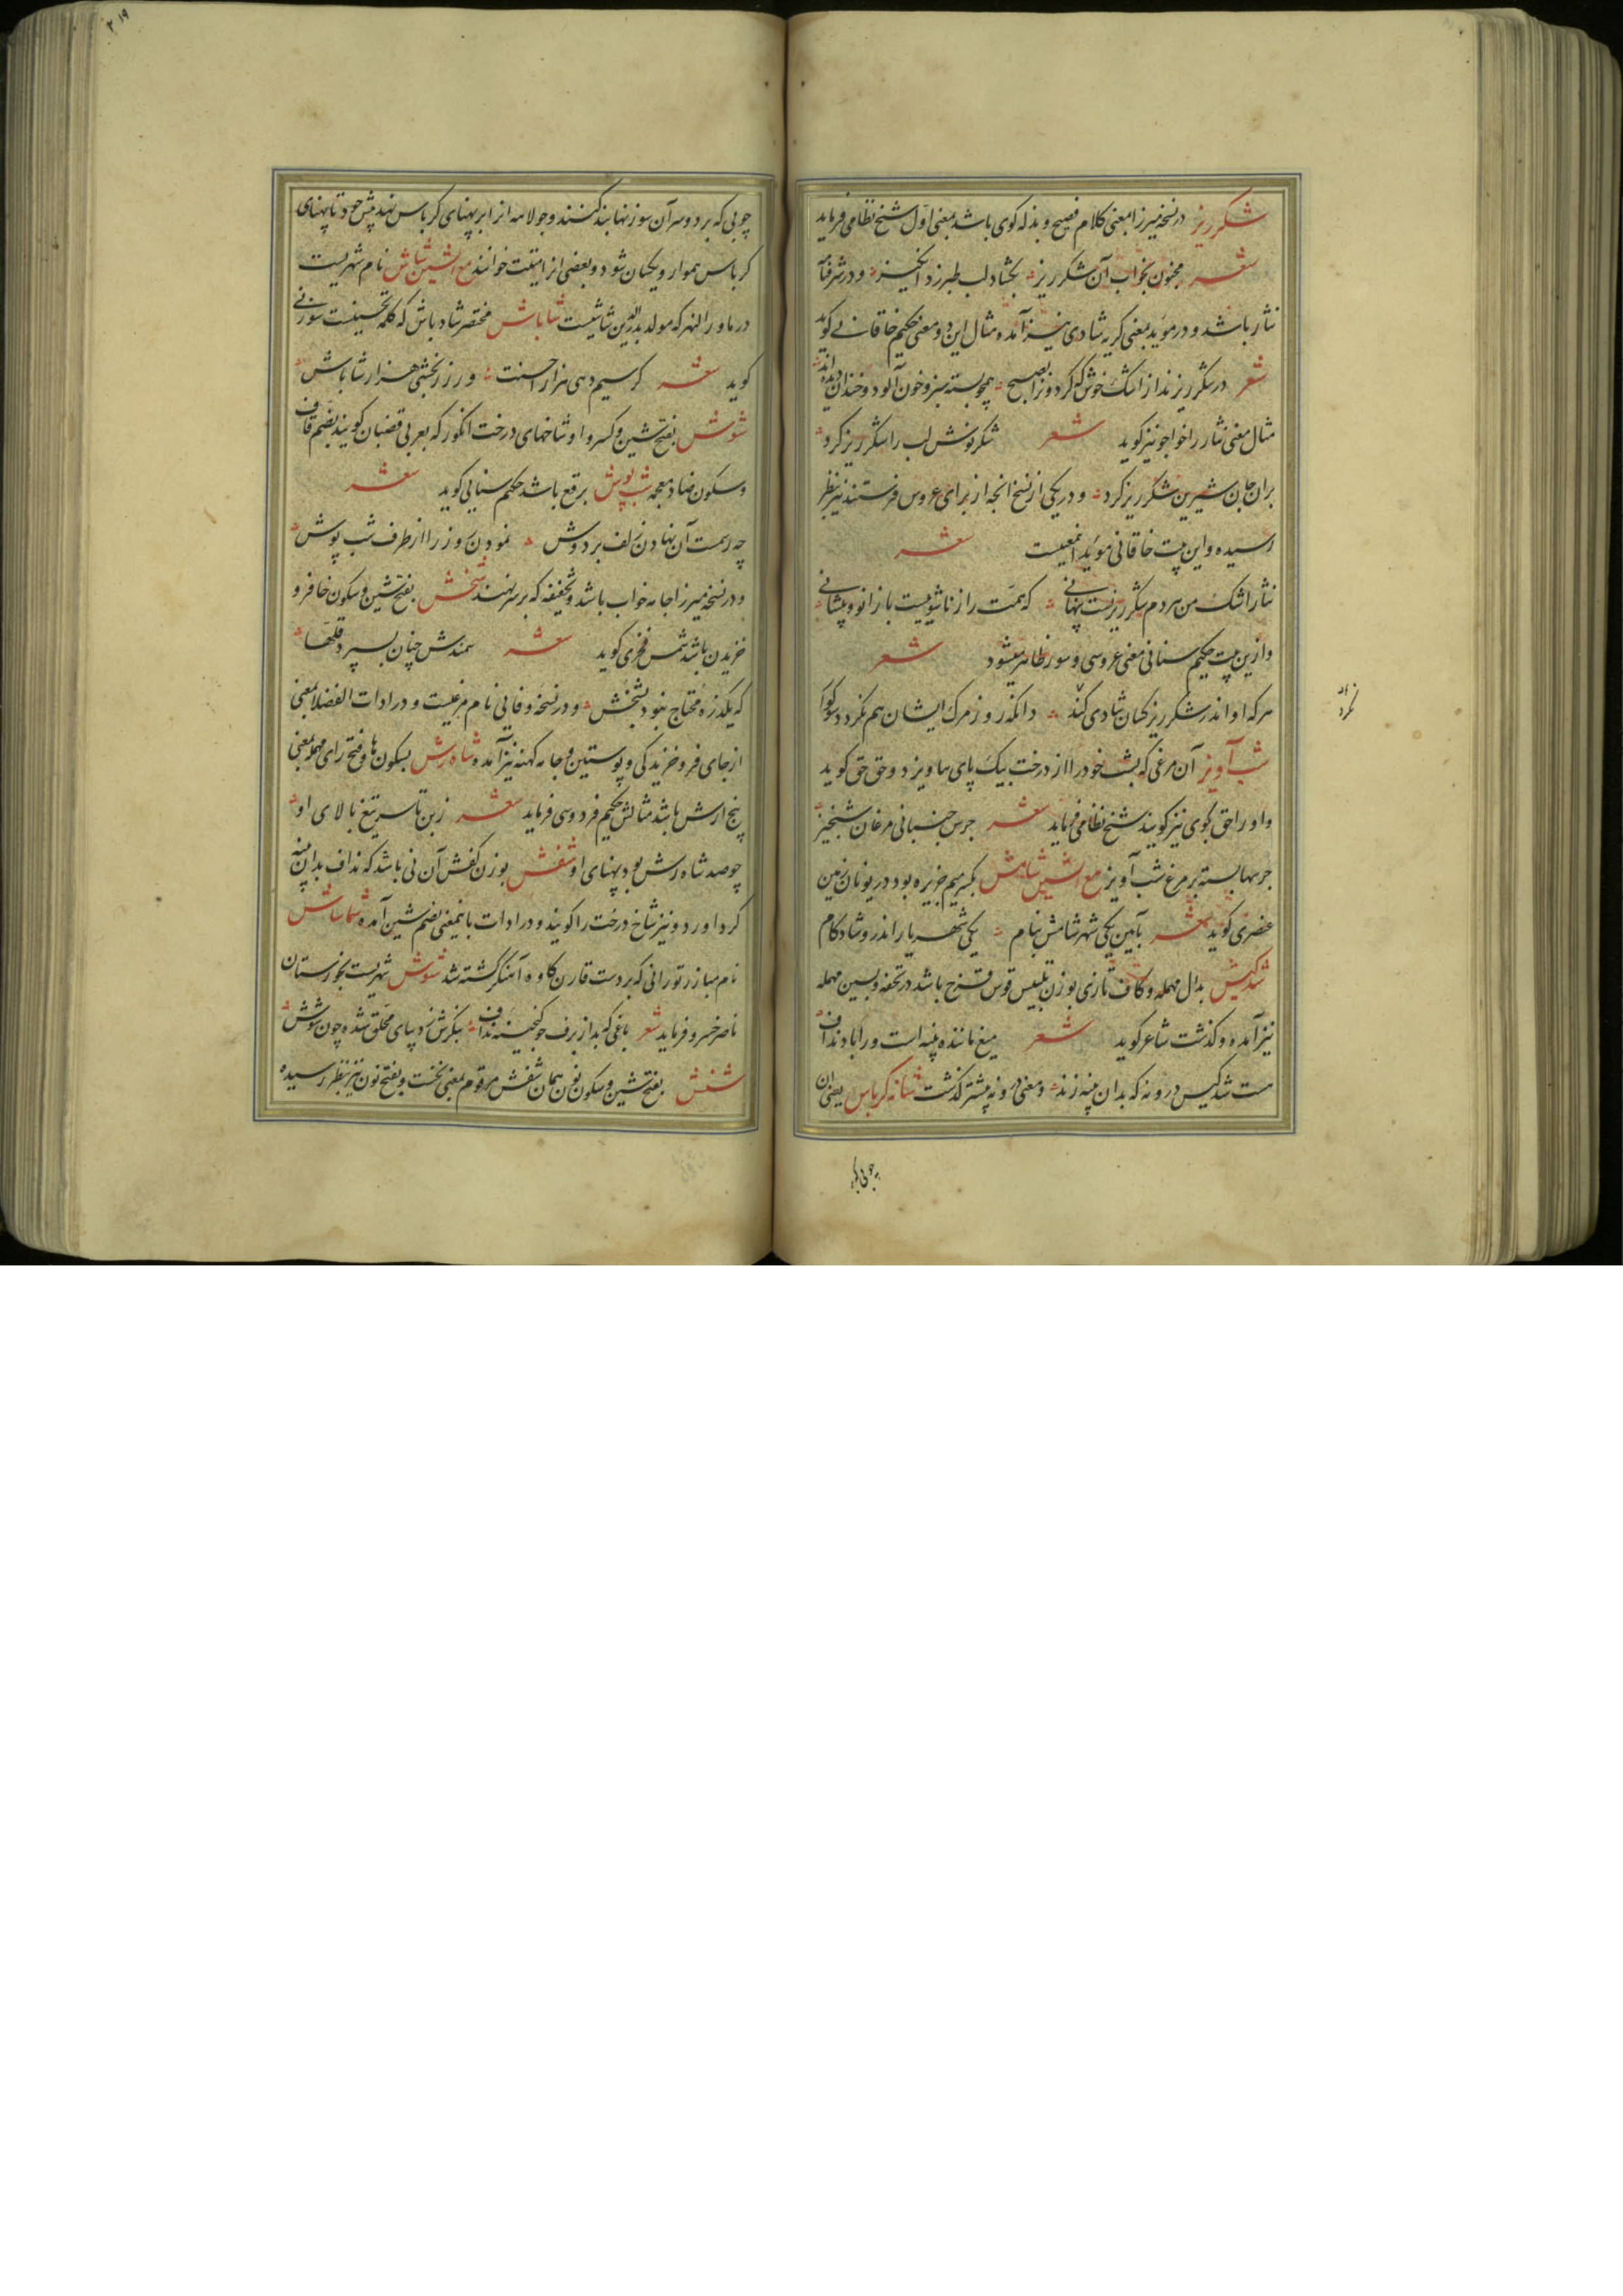 شکرریز در نسخه میرزا بمعنی کلام فصیح و بذله کوی باشد بمعنی اول شیخ نظامی فرماید
شعر مجنون بجواب آن شکرریز بکشاد لب طبرزد انکیز و در شرفنا
نثار باشد و در موید بمعنی کریه شادی نیز آمده مثال این دو معنی حکیم خاقانی کوید
شعر در شکرریزند از اشک خوش که کردون را بصبح همچو پسته سبز و خون آلود و خندان دیده اند
مثال معنی نثار را خواجو نیز کوید شعر شکر نوش لب را شکرریز کرد
بران جان شیرین شکرریز کرد و در یکی از نسخ انچه از برای عروس فرستند نیز بنظر
رسیده و این بیت خاقانی موید اینمعنیست شعر
نثار اشک من هردم شکرریزیست پنهانی که همت را زناشوییست با زانو و پیشانی
و ازین بیت حکیم سنائی معنی عروسی و سور ظاهر میشود شعر
هر که او اندر شکرریز کسان شادی کند دانکه روز مرک ایشان هم نکردد سوکوار
شب آویز آن مرغی که بشب خود را از درخت بیک پای بیاویزد و حق حق کوید
و او را حق کوی نیز کویند شیخ نظامی فرماید شعر جرس جنبانی مرغان شبخیز
جرسها بسته بر مرغ شب آویز مع الشین شامش بکسر میم جزیره بود در یونان زمین
عنصری کوید شعر بآیین یکی شهر شامش بنام یکی شهریار اندرو شادکام
شدکیش بدال مهمله و کاف تازی بوزن تلبیس قوس قزح باشد در تحفه و بسین مهمله
نیز آمده و کذشت شاعر کوید شعر میغ ماننده پنبه است و را باد نداف
هست شدکیس درونه که بدان پنبه زند و معنی درونه پیشتر کذشت شانه کرباس یعنی آن
چوبی که بر
نکردد
۲۱۹
چوبی که بر دو سر آن سوزنها بند کنند و جولاهه انرا بر پهنای کرباس نهد پیش خود تا پهنای
کرباس هموار و یکسان شود و بعضی انرا متیت خوانند مع الشین شاش نام شهریست
در ماوراالنهر که مولد بدرالدین شاشیست شاباش مختصر شادباش که کلمه تحسینست سوزنی
کوید شعر کر سیم دهی هزار احسنت ور زر بخشی هزار شاباش
شوش بفتح شین و کسر واو شاخهای درخت انکور که بعربی قضبان کویند بضم قاف
و سکون ضاد معجمه شب پوش برقع باشد حکیم سنایی کوید شعر
چه رسمست آن نهادن زلف بر دوش نمودن روز را از طرف شب پوش
و در نسخه میرزا جامه خواب باشد و تخفیفه که بر سر نهند شخش بفتح شین و سکون خا فرو
خزیدن باشد شمس فخری کوید شعر سمندش چنان بسپرد قلها
که یکذره محتاج نبود بشخش و در نسخه وفائی نام مرغیست و در ادات الفضلا بمعنی
از جای فرو خزیدکی و پوستین و جامه کهنه نیز آمد و شاه رش بسکون ها و فتح رای مهمله بمعنی
پنج ارش باشد مثالش حکیم فردوسی فرماید شعر ز بن تا سر تیغ بالای او
چو صد شاه رش بود پهنای او شفش بوزن کفش آن نی باشد که نداف بدان پنبه
کرد آورد و نیز شاخ درخت را کویند و در ادات باینمعنی بضم شین آمده شماساش
نام مبارز تورانی که بردست قارن کاوه آهنکر کشته شد شوش شهریست بخوزستان
ناصر خسرو فرماید شعر باغی که بد از برف چو کنجینه نداف بنکرش ز دیبای مخلق شده چون شوش
شنش بفتح شین و سکون نون همان شفش مرقوم بمعنی نخست و بفتح نون نیز بنظر رسیده